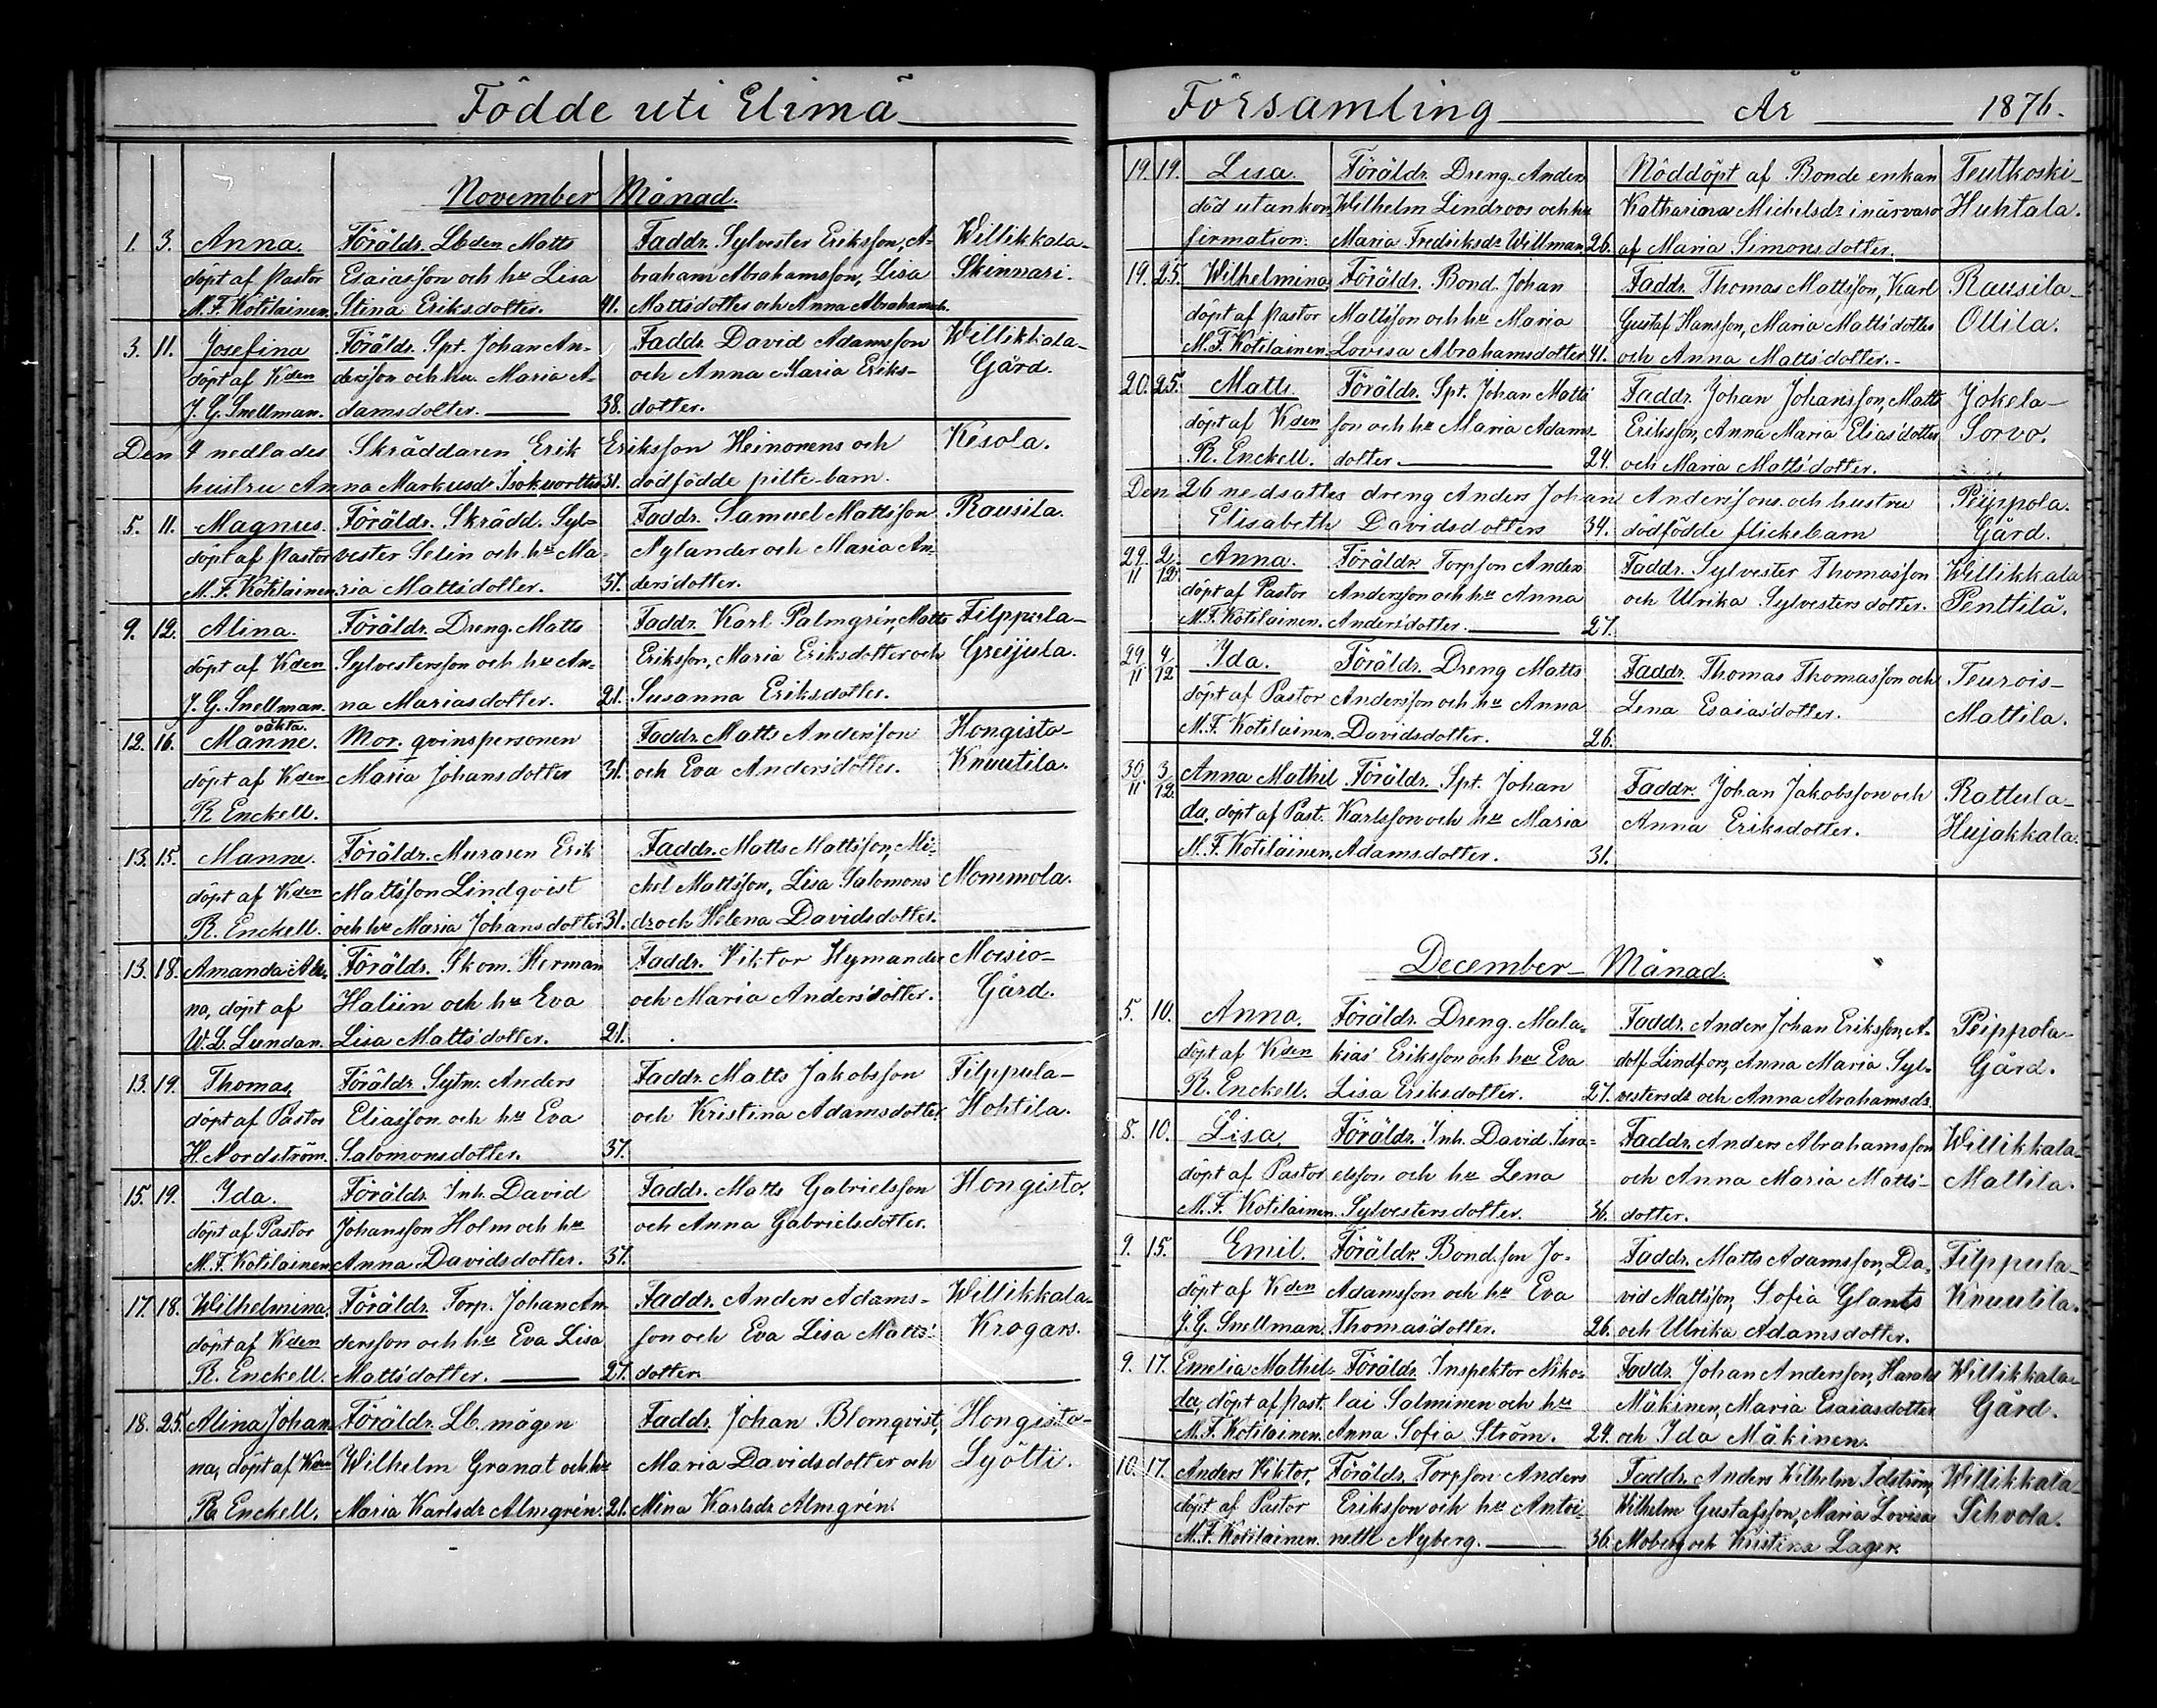 Födde uti Elimä
November Månad.
1. 3. Anna. Föräldr. Lbden Matts Faddr. Sylvester Eriksson, A- Willikkala-
döpt af Pastor Esaiasson och hu Lisa braham Abrahamsson, Lisa Skinnari.
M. F. Kotilainen. Stina Eriksdotter. 41. Mattsdotter och Anna Abrahamsd.
3. 11. Josefina Föräldr. Spt. Johan An- Faddr. David Adamsson Willikkala-
döpt af Kden dersson och hu. Maria A- och Anna Maria Eriks- Gård.
J. G. Snellman. damsdotter. 38. dotter.
Den 4 nedlades Skräddaren Erik Eriksson Heinonens och Kesola.
hustru Anna Markusdr Isokuorttis 31. dödfödde pilte-barn.
5. 11. Magnus. Föräldr. Skrädd. Syl- Faddr. Samuel Mattsson Rausila.
döpt af Pastor vester Selin och hu Ma- Nylander och Maria An-
M. F. Kotilainen. ria Mattsdotter. 37. dersdotter.
9. 12. Alina. Föräldr. Dreng. Matts Faddr. Karl Palmgrén, Matts Filppula-
döpt af Kden Sylvestersson och hu An- Eriksson, Maria Eriksdotter och Greijula.
J. G. Snellman. na Mariasdotter. 21. Susanna Eriksdotter.
oäkta.
12. 16. Manne. Mor. qvinspersonen Faddr. Matts Andersson Hongisto-
döpt af Kden Maria Johansdotter 31. och Eva Andersdotter. Knuutila.
R. Enckell.
13. 15. Manne. Föräldr. Muraren Erik Faddr. Matts Mattsson, Mi-
döpt af Kden Mattsson Lindqvist chel Mattsson, Lisa Salomons Mommola.
R. Enckell. och hu Maria Johansdotter 31. dr och Helena Davidsdotter.
13. 18. Amanda Ali- Föräldr. Skom. Herman Faddr. Viktor Hymander Moisio-
na, döpt af Haliin och hu Eva och Maria Andersdotter. Gård.
W. L. Lundan. Lisa Mattsdotter. 21.
13. 19. Thomas, Föräldr. Sytn. Anders Faddr. Matts Jakobsson Filppula-
döpt af Pastor Eliasson och hu Eva och Kristina Adamsdotter. Hohtila.
H. Nordström. Salomonsdotter. 37.
15. 19. Ida. Föräldr. Inh. David Faddr. Matts Gabrielsson Hongisto.
döpt af Pastor Johansson Holm och hu och Anna Gabrielsdotter.
M. F. Kotilainen Anna Davidsdotter. 37.
17. 18. Wilhelmina, Föräldr. Torp. Johan An- Faddr. Anders Adams- Willikkala-
döpt af Kden dersson och hu Eva Lisa son och Eva Lisa Matts- Krogars.
R. Enckell. Mattsdotter. 27. dotter.
18. 25. Alina Johan- Föräldr. Lb. mågen Faddr. Johan Blomqvist, Hongisto-
na, döpt af Kden Wilhelm Granat och hu Maria Davidsdotter och Syötti.
R. Enckell. Maria Karlsdr Almgrén. 21. Mina Karlsdr Almgrén.
Församling År 1876.
19. 19. Lisa. Föräldr. Dreng. Anders Nöddöpt af Bonde enkan Teutkoski-
död utan kon- Wilhelm Lindroos och hu Katharina Michelsdr i närvaro Huhtala.
firmation. Maria Fredriksdr Willman. 26. af Maria Simonsdotter.
19. 25. Wilhelmina, Föräldr. Bond. Johan Faddr. Thomas Mattsson, Karl Rausila-
döpt af Pastor Mattsson och hu Maria Gustaf Hansson, Maria Mattsdotter Ollila.
M. F. Kotilainen. Lovisa Abrahamsdotter 41. och Anna Mattsdotter.
20. 25. Matts. Föräldr. Spt. Johan Matts Faddr. Johan Johansson, Matts Jokela-
döpt af Kden son och hu Maria Adams- Eriksson, Anna Maria Eliasdotter Sorvo.
R. Enckell. dotter. 24. och Maria Mattsdotter.
Den 26 nedsattes dreng Anders Johan Anderssons och hustru Peippola.
Elisabeth Davidsdotters 34. dödfödde flickebarn Gård.
29/11 2/12. Anna. Föräldr. Torpson Anders Faddr. Sylvester Thomasson Willikkala
döpt af Pastor Andersson och hu Anna och Ulrika Sylvestersdotter. Penttilä.
M. F. Kotilainen. Andersdotter. 27.
29/11 4/12 Ida. Föräldr. Dreng Matts Faddr. Thomas Thomasson och Teurois-
döpt af Pastor Andersson och hu Anna Lena Esaiasdotter. Mattila.
M. F. Kotilainen. Davidsdotter. 26.
30/11 3/12. Anna Mathil Föräldr. Spt. Johan Faddr. Johan Jakobsson och Rattula-
da, döpt af Past. Karlsson och hu Maria Anna Eriksdotter. Hujakkala.
M. F. Kotilainen. Adamsdotter. 31.
December Månad.
5. 10. Anna. Föräldr. Dreng. Mala- Faddr. Anders Johan Eriksson, A- Peippola-
döpt af Kden kias Eriksson och hu Eva dolf Lindfors, Anna Maria Syl- Gård.
R. Enckell. Lisa Eriksdotter. 27. vestersdr och Anna Abrahamsdr.
8. 10. Lisa Föräldr. Inh. David Isra- Faddr. Anders Abrahamsson Willikkala-
döpt af Pastor elsson och hu Lena och Anna Maria Matts- Mattila.
M. F. Kotilainen. Sylvestersdotter. 36. dotter.
9. 15. Emil. Föräldr. Bond. son Jo- Faddr. Matts Adamsson, Da- Filppula-
döpt af Kden Adamsson och hu Eva vid Mattsson, Sofia Glants Knuutila.
J. G. Snellman. Thomasdotter. 26. och Ulrika Adamsdotter.
9. 17. Emelia Mathil- Föräldr. Inspektor Niko- Faddr. Johan Andersson, Harald Willikkala-
da, döpt af Past. lai Salminen och hu Mäkinen, Maria Esaiasdotter Gård.
M. F. Kotilainen. Anna Sofia Ström. 24. och Ida Mäkinen.
10. 17. Anders Viktor, Föräldr. Torpson Anders Faddr. Anders Wilhelm Idström, Willikkala-
döpt af Pastor Eriksson och hu Antoi- Wilhelm Gustafsson, Maria Lovisa Sihvola.
M. F. Kotilainen. nette Nyberg. 36. Moberg och Kristina Lager.